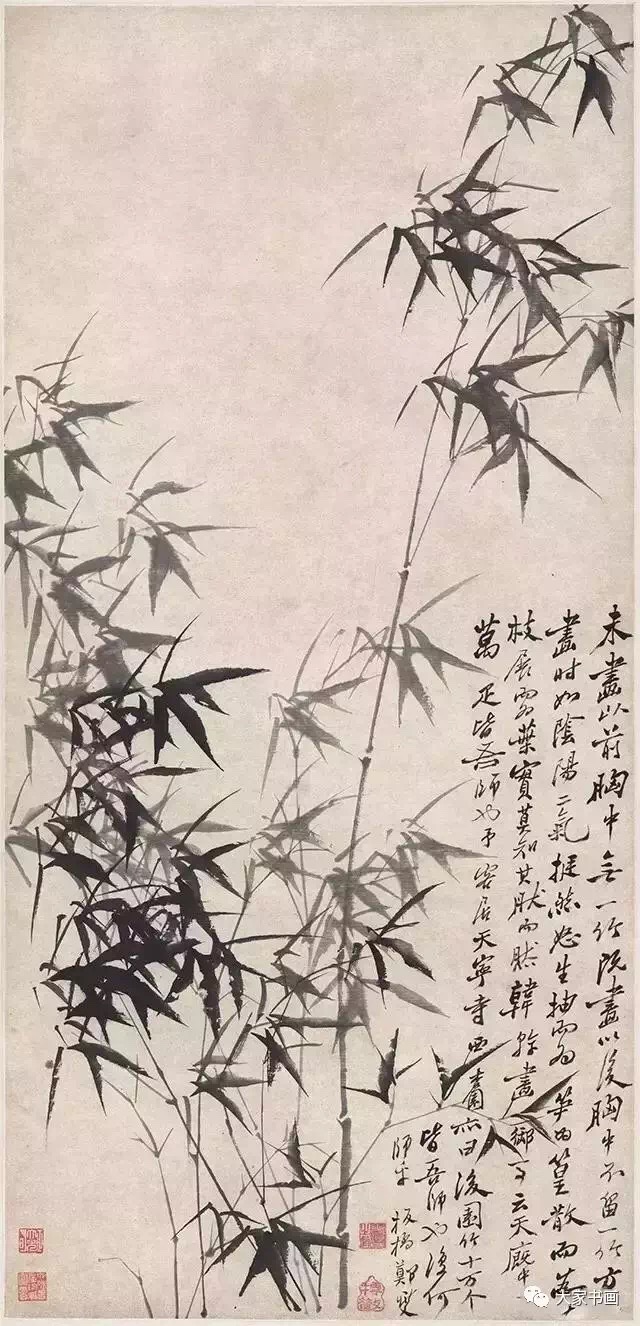 未畫以前胸中無一竹既畫以後胸中不留一竹方
畫時如陰陽二氣挺然怒生抽而為笋為篁散而為
枝展而為葉實莫知其然而然韓幹畫御馬云天廐中
萬疋皆吾師也予客居天寧寺西杏園亦曰後園竹十萬个
皆吾師也復何
師乎板橋鄭燮
大家书画